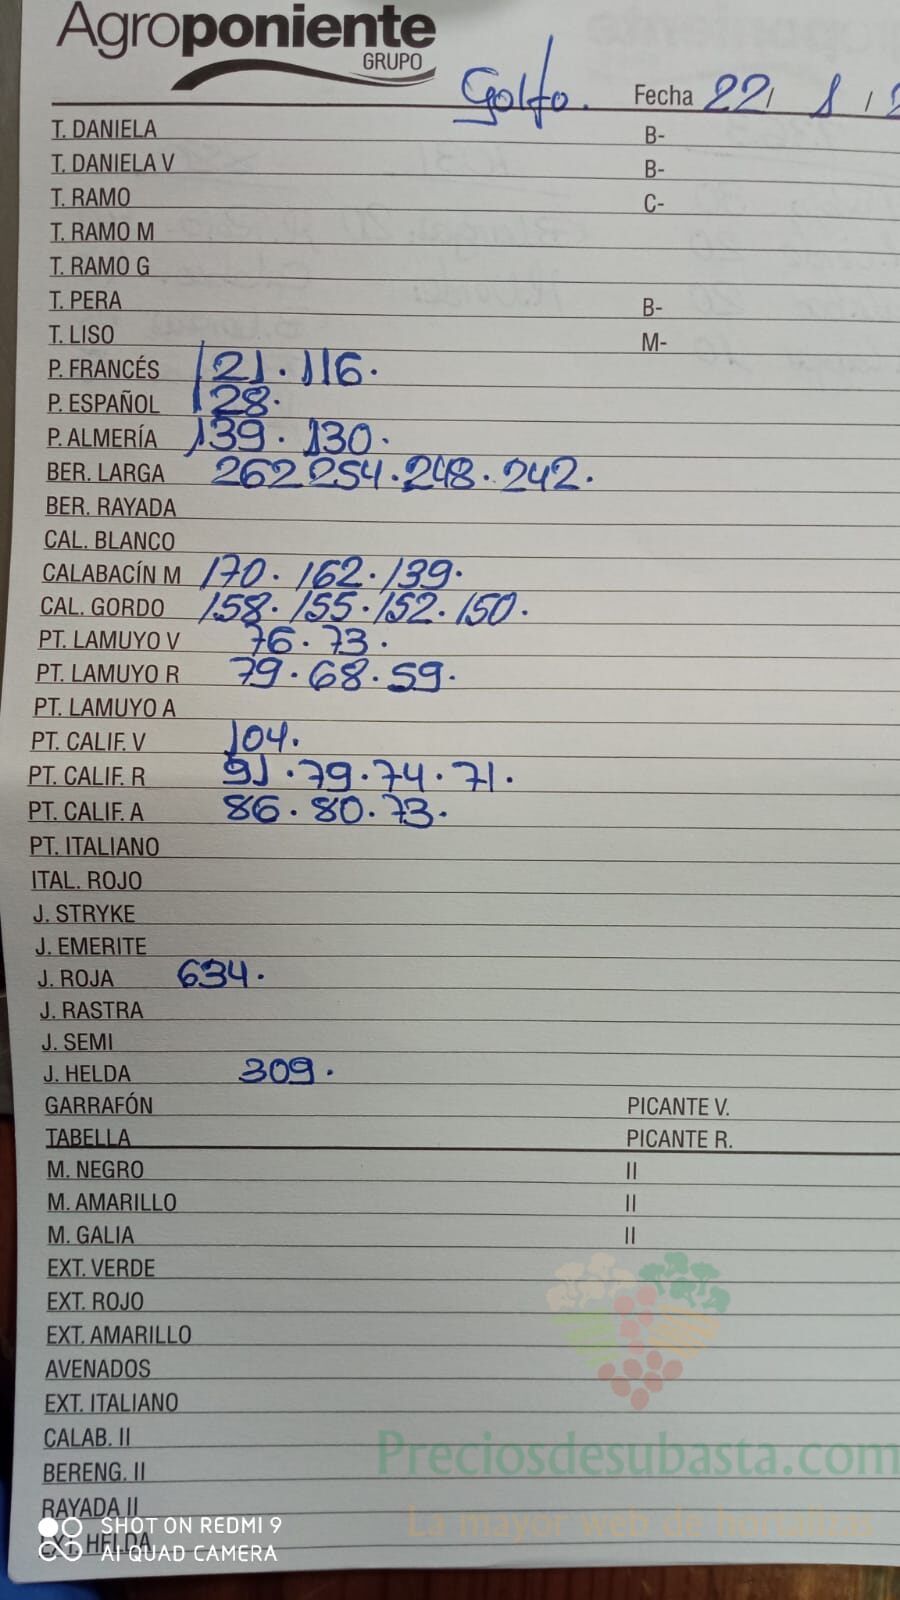 Agroponiente
GRUPO
Golfo. Fecha 22/ 1/2
T. DANIELA B-
T. DANIELA V B-
T. RAMO C-
T. RAMO M
T. RAMO G
T. PERA B-
T. LISO M-
P. FRANCÉS 121. 116.
P. ESPAÑOL 128.
P. ALMERÍA 139. 130.
BER. LARGA 262 254. 248. 242.
BER. RAYADA
CAL. BLANCO
CALABACÍN M 170. 162. 139.
CAL. GORDO 158. 155. 152. 150.
PT. LAMUYO V 76. 73.
PT. LAMUYO R 79. 68. 59.
PT. LAMUYO A
PT. CALIF. V 104.
PT. CALIF. R 91. 79. 74. 71.
PT. CALIF. A 86. 80. 73.
PT. ITALIANO
ITAL. ROJO
J. STRYKE
J. EMERITE
J. ROJA 634.
J. RASTRA
J. SEMI
J. HELDA 309.
GARRAFÓN PICANTE V.
TABELLA PICANTE R.
M. NEGRO II
M. AMARILLO II
M. GALIA II
EXT. VERDE
EXT. ROJO
EXT. AMARILLO
AVENADOS
EXT. ITALIANO
CALAB. II
Preciosdesubasta.com
BERENG. II
RAYADA II
La mayor web de hortalizas
SHOT ON REDMI 9
EXT. HELDA
AI QUAD CAMERA